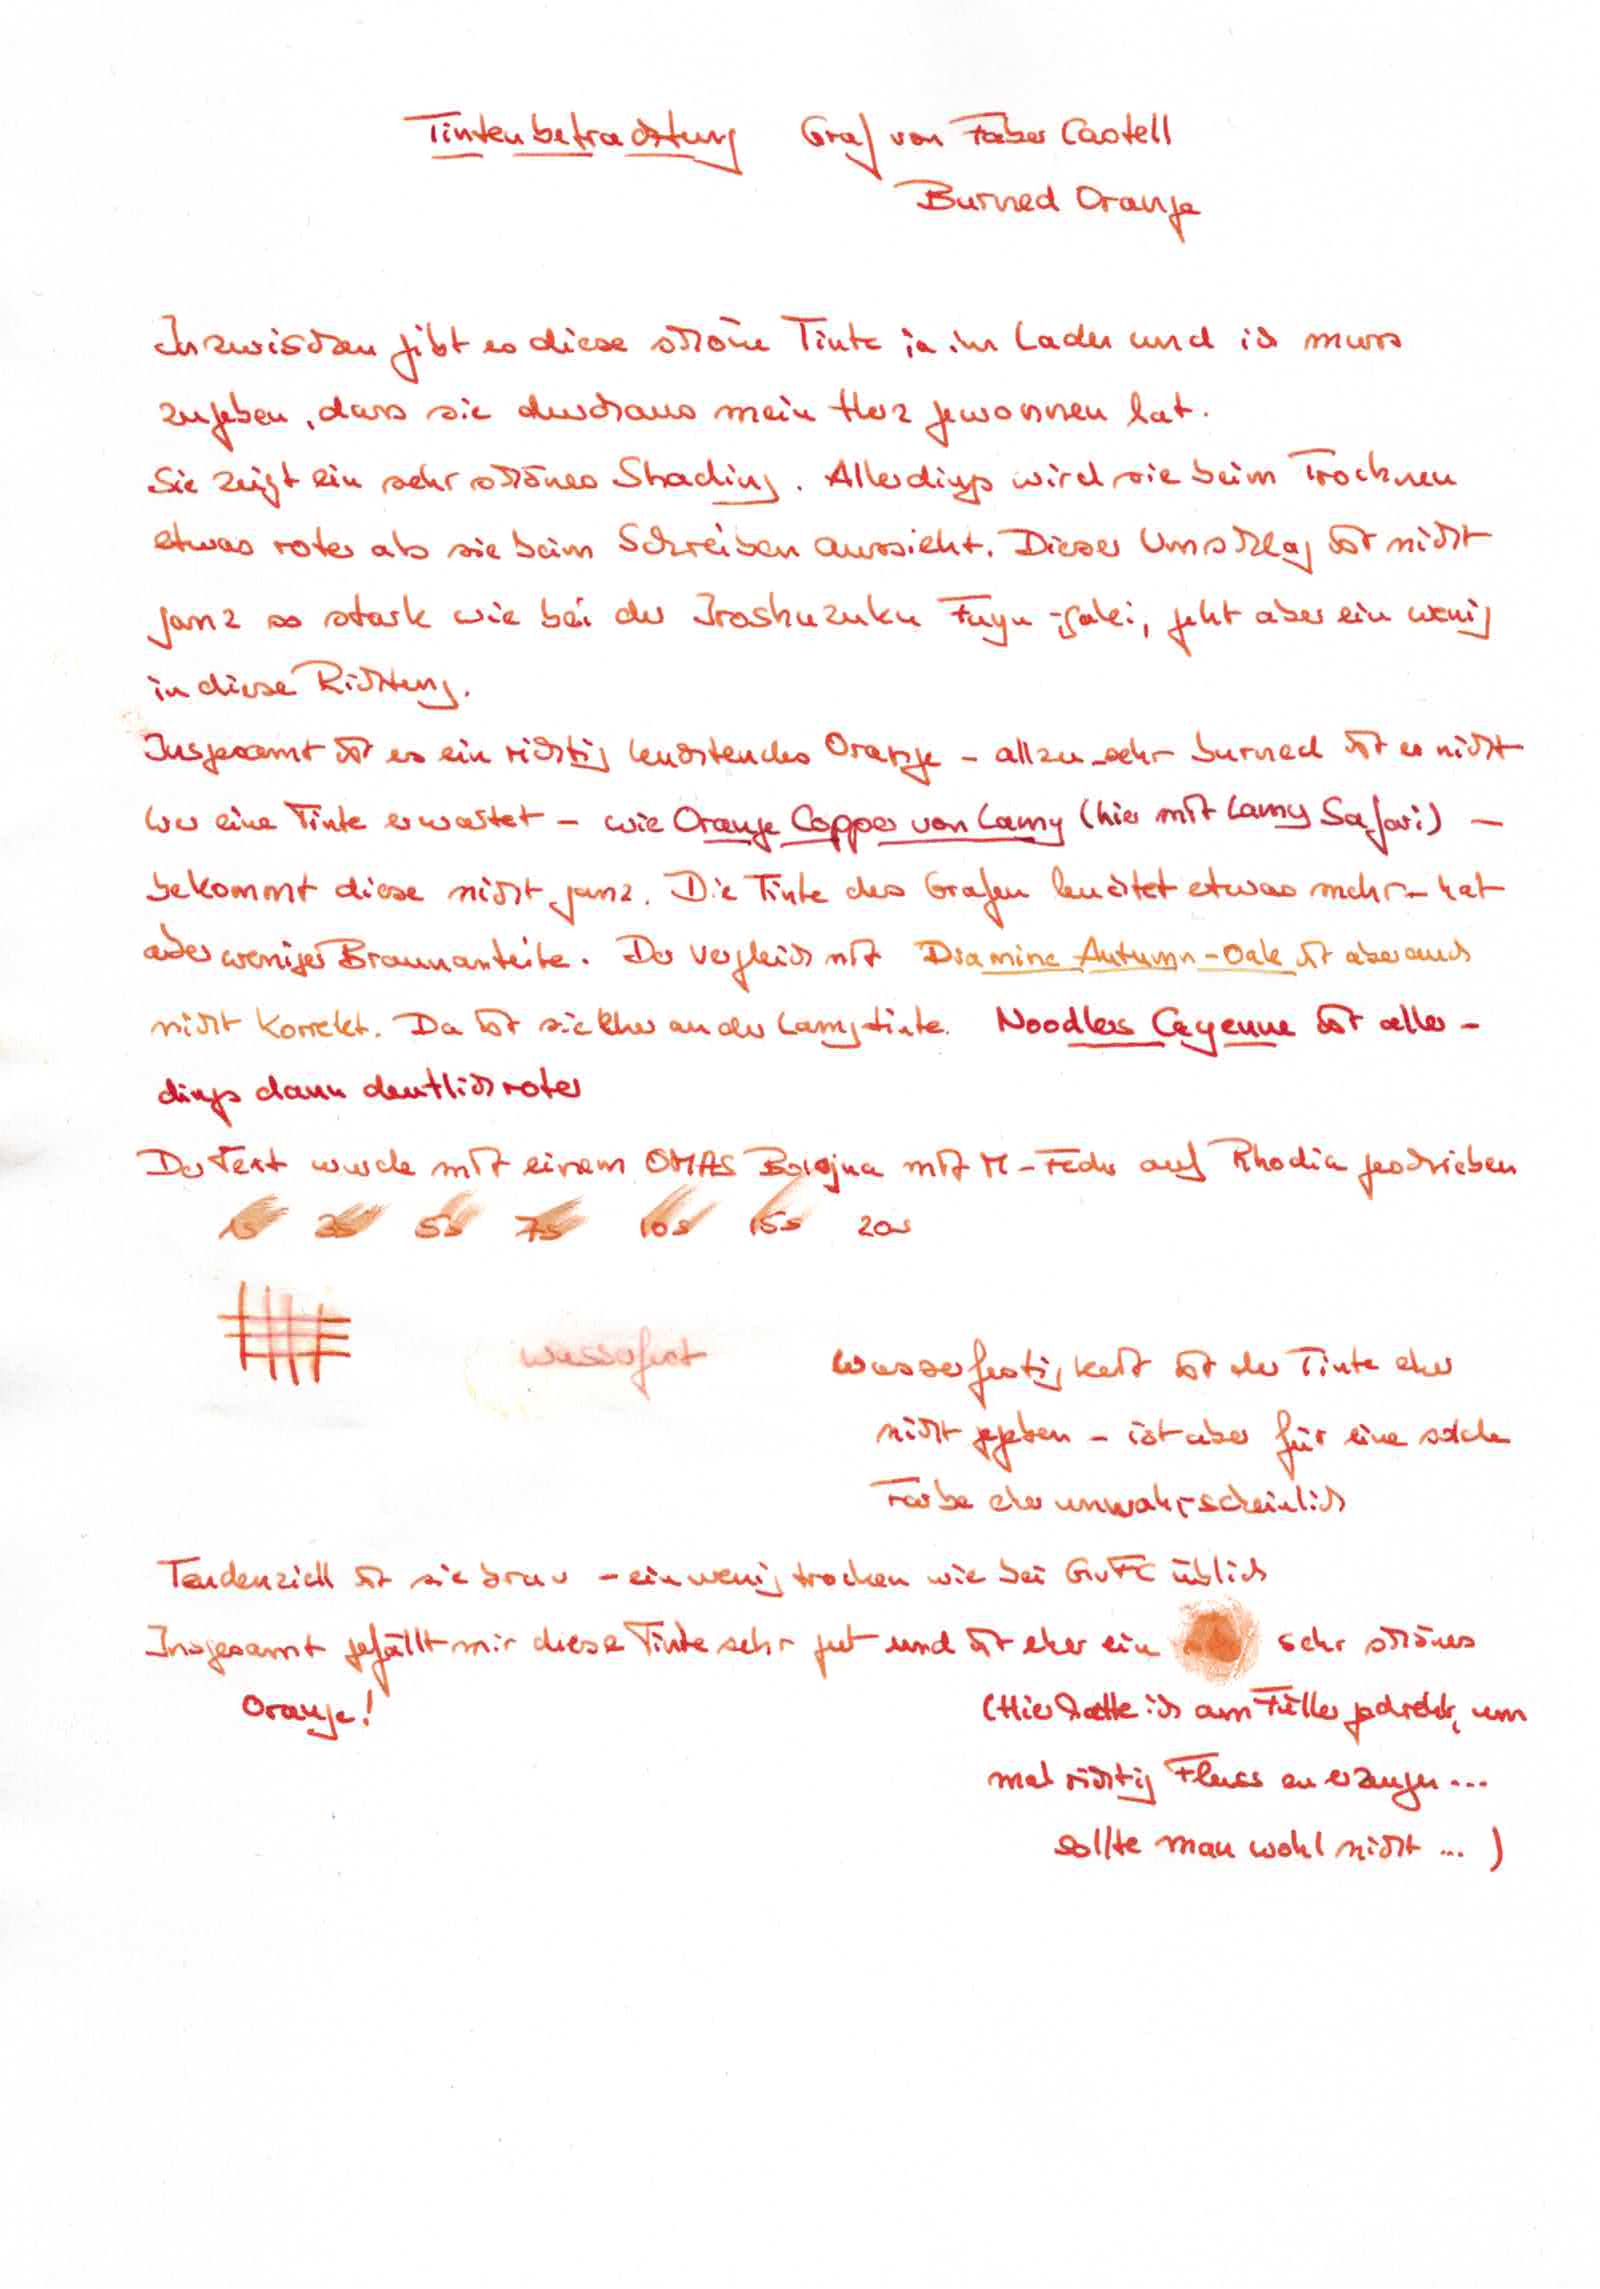 Tintenbetrachtung Graf von Faber Castell
Burned Orange
Inzwischen gibt es diese schöne Tinte ja im Laden und ich muss
zugeben, dass sie durchaus mein Herz gewonnen hat.
Sie zeigt ein sehr schönes Shading. Allerdings wird sie beim Trocknen
etwas roter als sie beim Schreiben aussieht. Dieser Umschlag ist nicht
ganz so stark wie bei der Iroshuzuku Fuyu-gaki, geht aber ein wenig
in diese Richtung.
Insgesamt ist es ein richtig leuchtendes Orange - allzu sehr burned ist es nicht
Wer eine Tinte erwartet - wie Orange Copper von Lamy (hier mit Lamy Safari) -
bekommt diese nicht ganz. Die Tinte des Grafen leuchtet etwas mehr - hat
aber weniger Braunanteile. Der Vergleich mit Diamine Autumn-Oak ist aber auch
nicht korrekt. Da ist sie eher an der Lamytinte. Noodlers Cayenne ist aller-
dings dann deutlich roter
Der Text wurde mit einem OMAS Bologna mit M-Feder auf Rhodia geschrieben
1s 3s 5s 7s 10s 15s 20s
wasserfest
Wasserfestigkeit ist der Tinte eher
nicht gegeben - ist aber für eine solche
Farbe eher unwahrscheinlich
Tendenziell ist sie brav - ein wenig trocken wie bei GvFC üblich
Insgesamt gefällt mir diese Tinte sehr gut und ist eher ein sehr schönes
Orange!
(Hier hatte ich am Füller gedreht, um
mal richtig Fluss zu erzeugen...
sollte man wohl nicht ... )